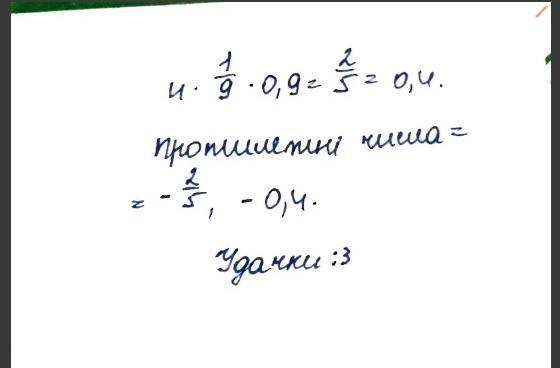 4 · 1/9 · 0,9 = 2/5 = 0,4.
протилежні числа =
= - 2/5, - 0,4.
Удачки :3